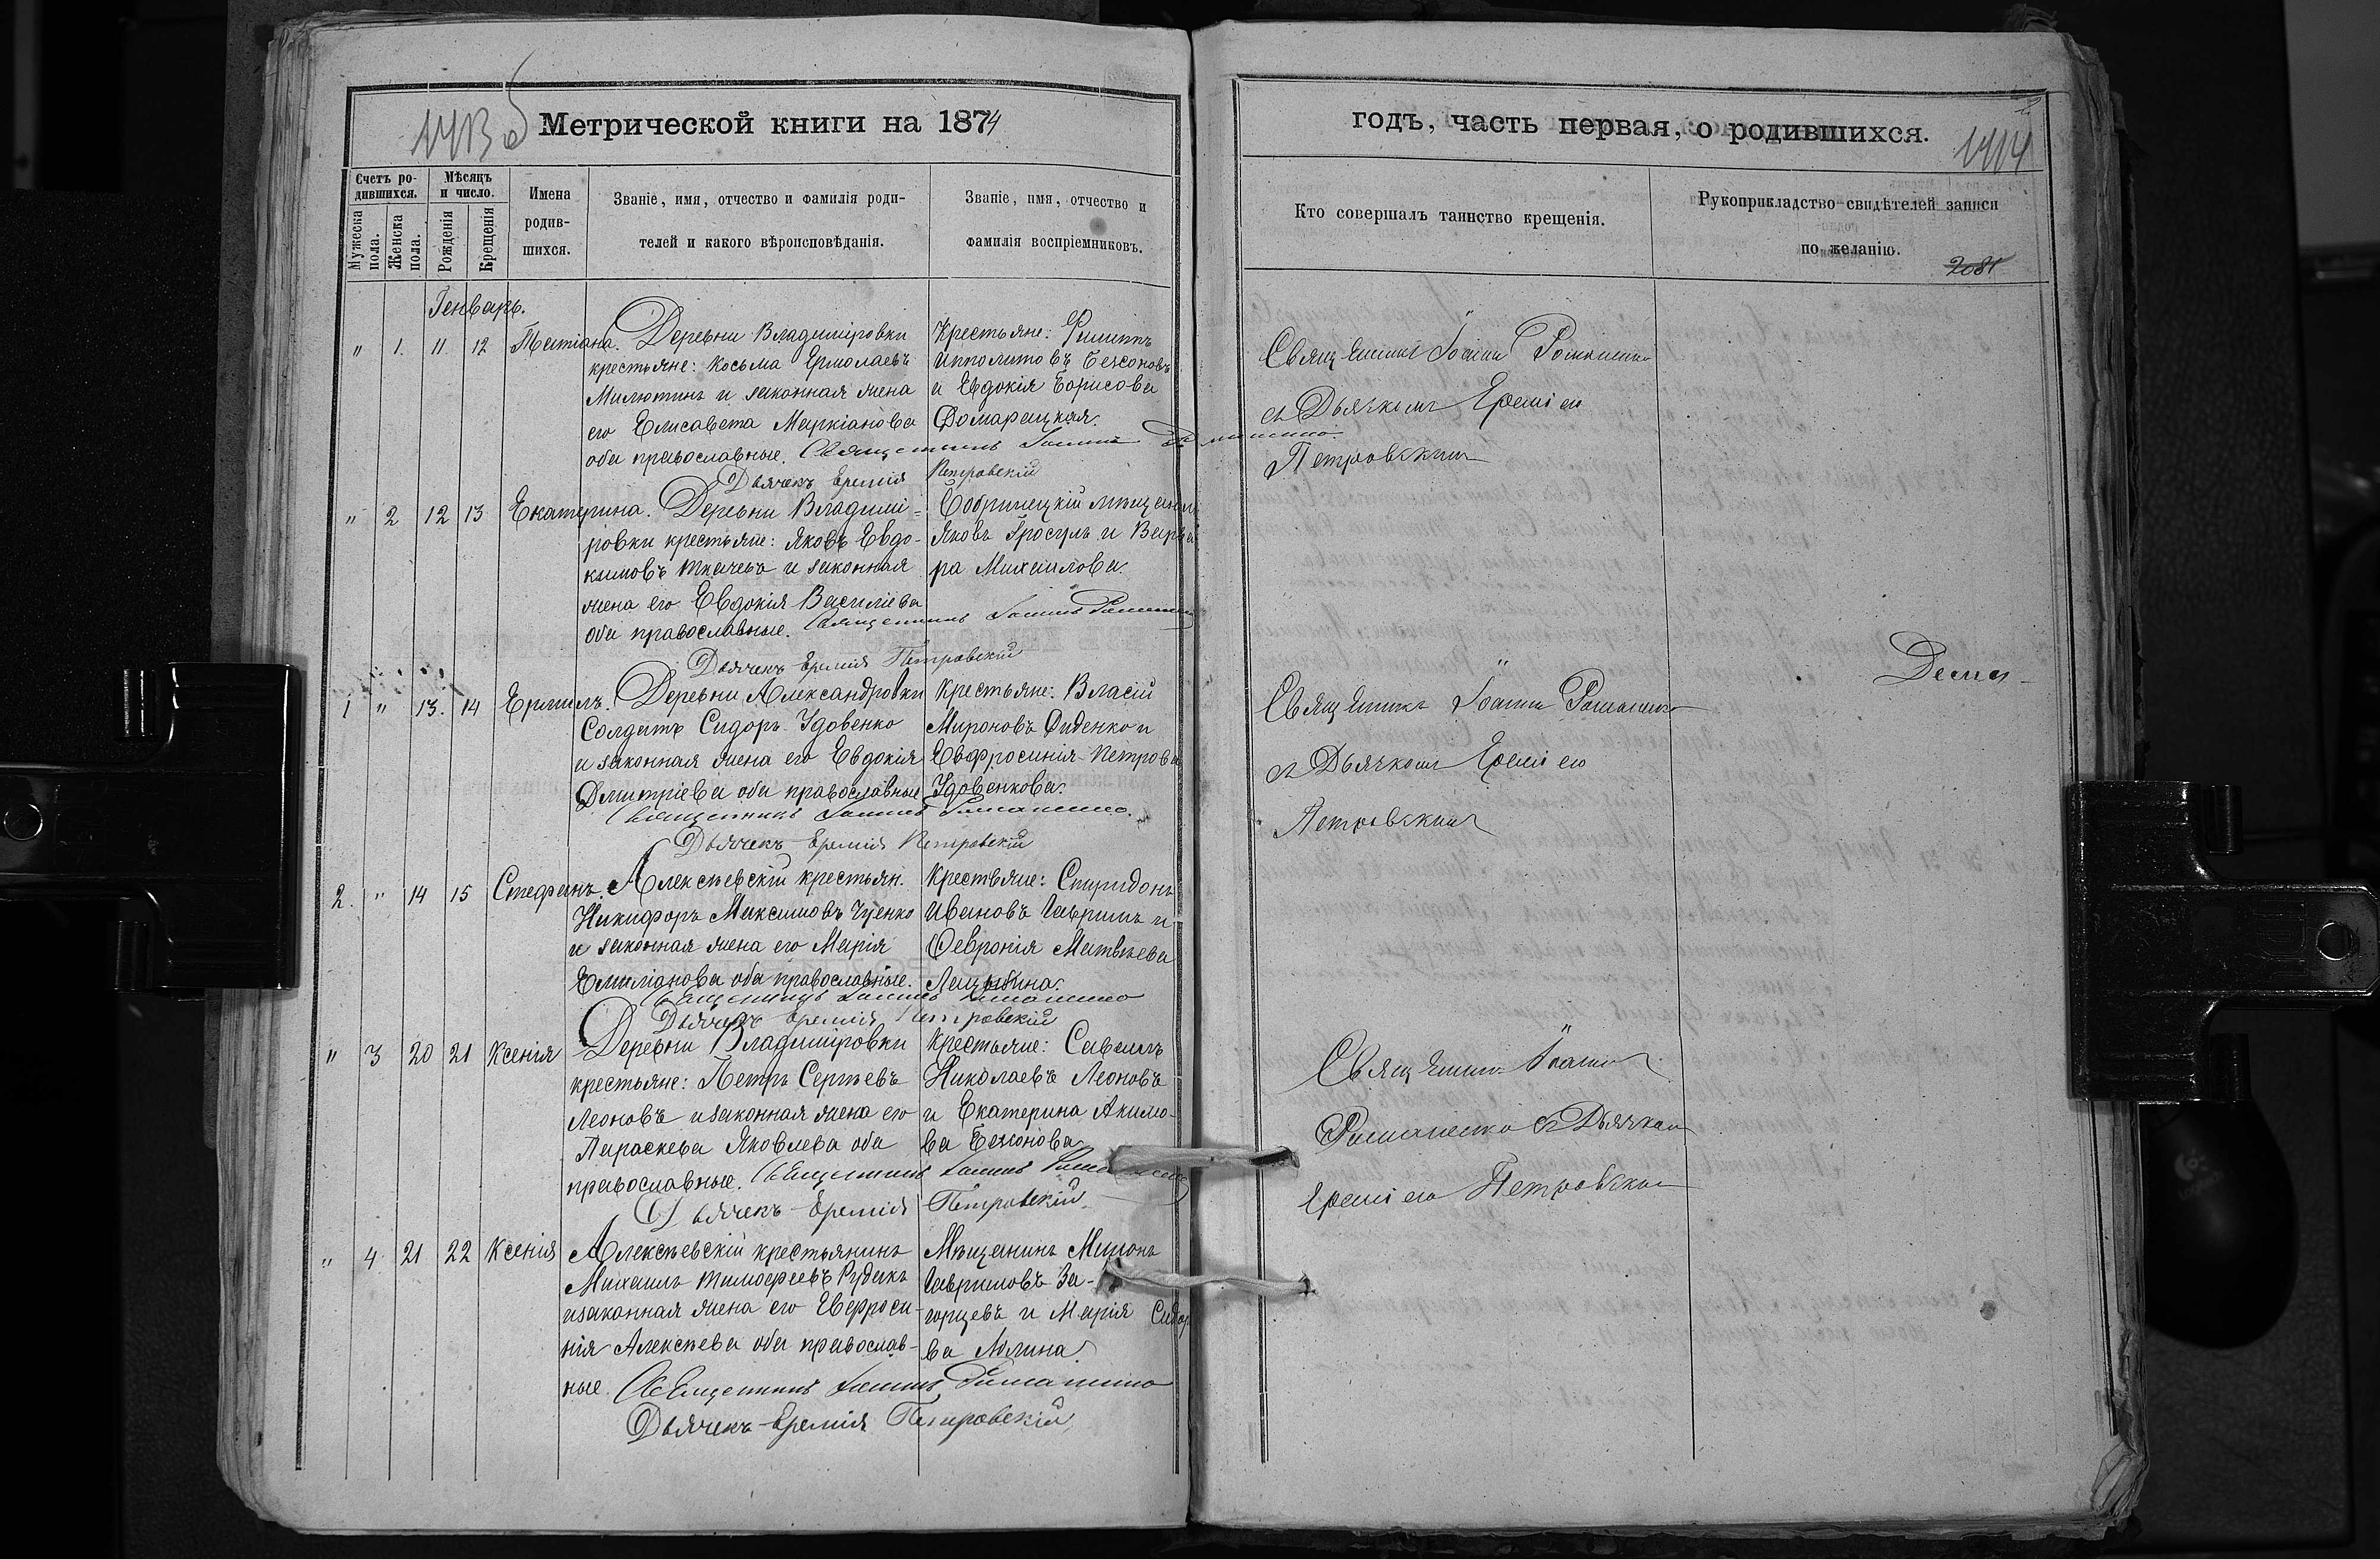 Метрической книги на 1874
годъ, часть первая, о родившихся.
1414
Счетъ ро-
дившихся.
Мужеска пола.
Женска пола.
Мѣсяцъ
и число.
Рожденія
Крещенія
Имена
родив-
шихся.
Званіе, имя, отчество и фамилія роди-
телей и какого вѣроисповѣданія.
Званіе, имя, отчество и
фамилія воспріемниковъ.
Кто совершалъ таинство крещенія.
Рукоприкладство свидѣтелей записи
по желанію.
2081
Генварь.
" 1. 11 12 Татіана.
Деревни Владиміровки
крестьяне: Косьма Ермолаевъ
Милютинъ и законная жена
его Елисавета Маркіанова
оба православные. Священникъ Іоаннъ Романенко
Дьячекъ Еремія Петровскій
Крестьяне: Филиппъ
Ипполитовъ Безсоновъ
и Евдокія Борисова
Домарецкая.
Священникъ Іоаннъ Романенко
съ Дьячкомъ Ереміею
Петровскимъ
" 2 12 13 Екатерина.
Деревни Владимі-
ровки крестьяне: Яковъ Евдо-
кимовъ Ткачевъ и законная
жена его Евдокія Василіева
оба православные. Священникъ Іоаннъ Романенко
Дьячекъ Еремія Петровскій
Бобринецкій мѣщанинъ
Яковъ Гросулъ и
ра Михаилова.
1 " 13. 14 Ермилъ.
Деревни Александровки
Солдатъ Сидоръ Удовенко
и законная жена его Евдокія
Дмитріева оба православные
Священникъ Іоаннъ Романенко.
Дьячекъ Еремія Петровскій
Крестьяне: Власій
Мироновъ Диденко и
Евфросинія Петрова
Удовенкова.
Священникъ Іоаннъ Романенко
съ Дьячкомъ Ереміею
Петровскимъ
2. " 14 15 Стефанъ.
Алексѣевскій крестьян.
Никифоръ Максимовъ
и законная жена его Марія
Емиліанова оба православные.
Священникъ Іоаннъ Романенко
Дьячекъ Еремія Петровскій
Крестьяне: Спиридонъ
Ивановъ Гавришъ и
Февронія Матвѣева
" 3 20 21 Ксенія
Деревни Владиміровки
крестьяне: Петръ Сергѣевъ
Леоновъ и законная жена его
Параскева Яковлева оба
православные. Священникъ Іоаннъ Романенко
Дьячекъ Еремія Петровскій
Крестьяне: Савелъ
Николаевъ Леоновъ
и Екатерина Акимо-
ва Безсонова.
Священникъ Іоаннъ
Романенко съ Дьячкомъ
Ереміею Петровскимъ
" 4 21 22 Ксенія
Алексѣевскій крестьянинъ
Михаилъ Тимофеевъ Рудакъ
и законная жена его Евфроси-
нія Алексѣева оба православ-
ные. Священникъ Іоаннъ Романенко
Дьячекъ Еремія Петровскій
Мѣщанинъ Миронъ
Гавриловъ За-
горцевъ и Марія
ва